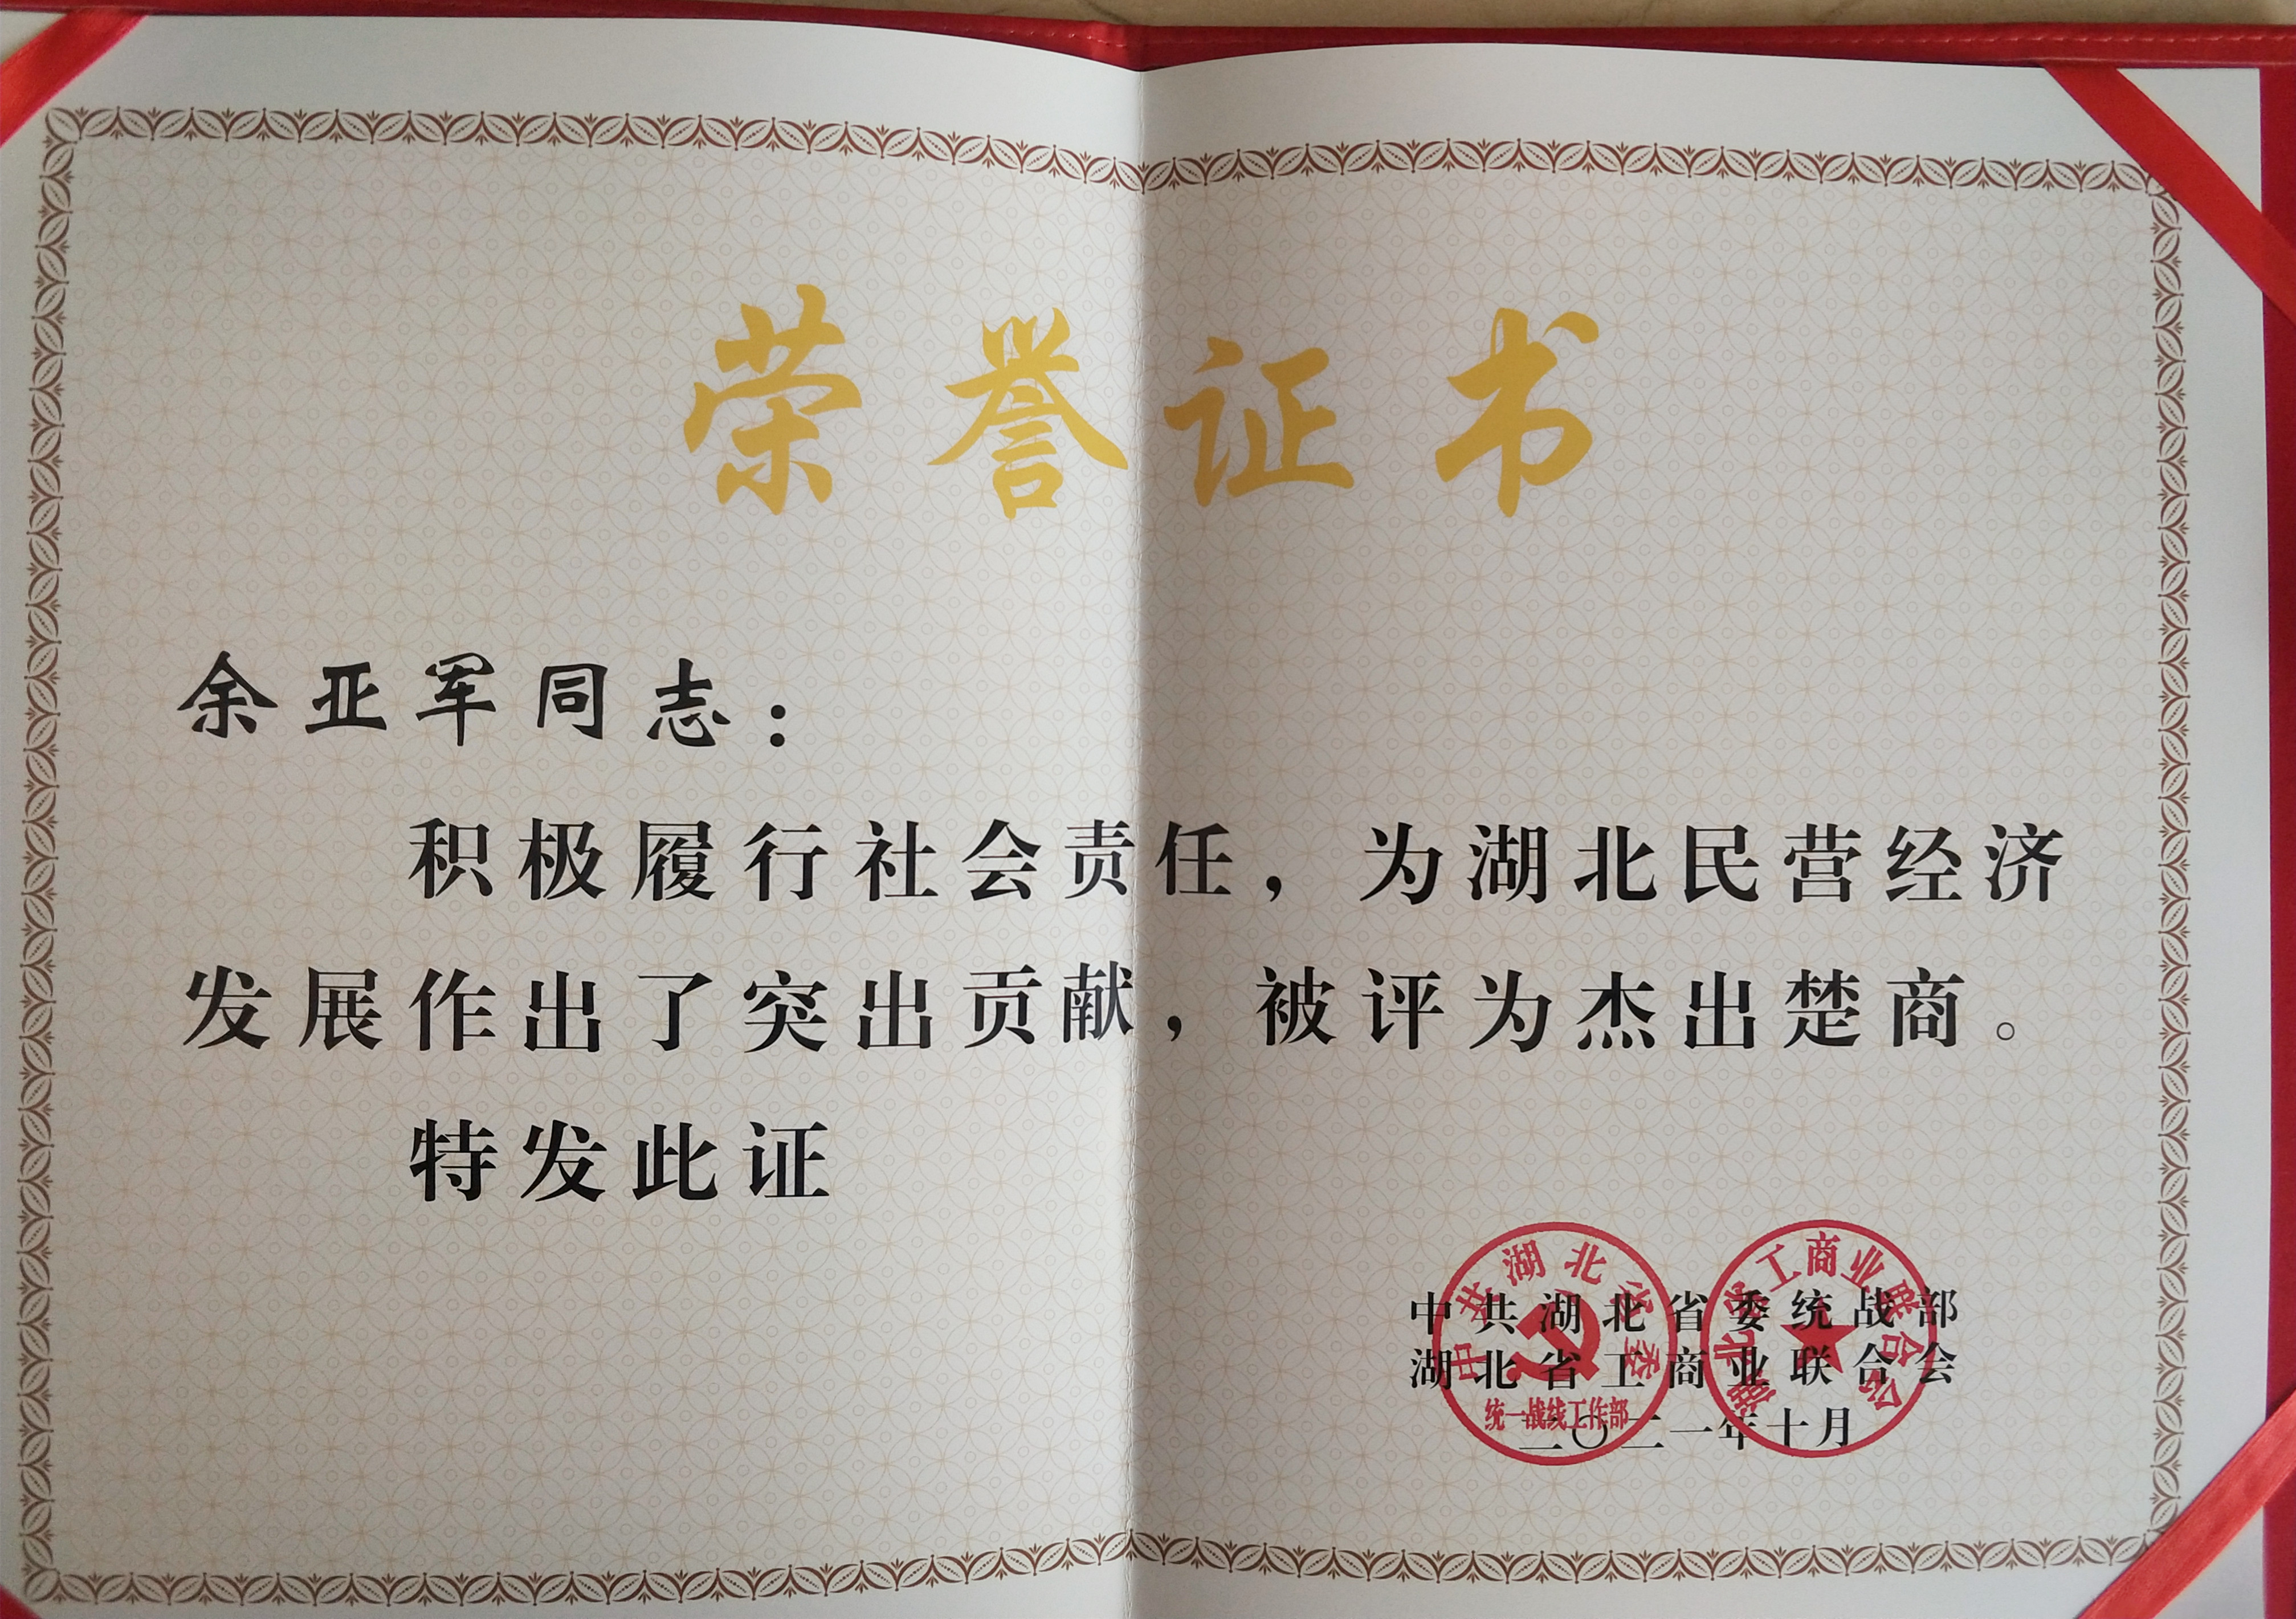 荣誉证书
余亚军同志：
积极履行社会责任，为湖北民营经济
发展作出了突出贡献，被评为杰出楚商。
特发此证
中共湖北省委统战部
湖北省工商业联合会
二〇二一年十月
中共湖北省委
统一战线工作部
湖北省工商业联合会